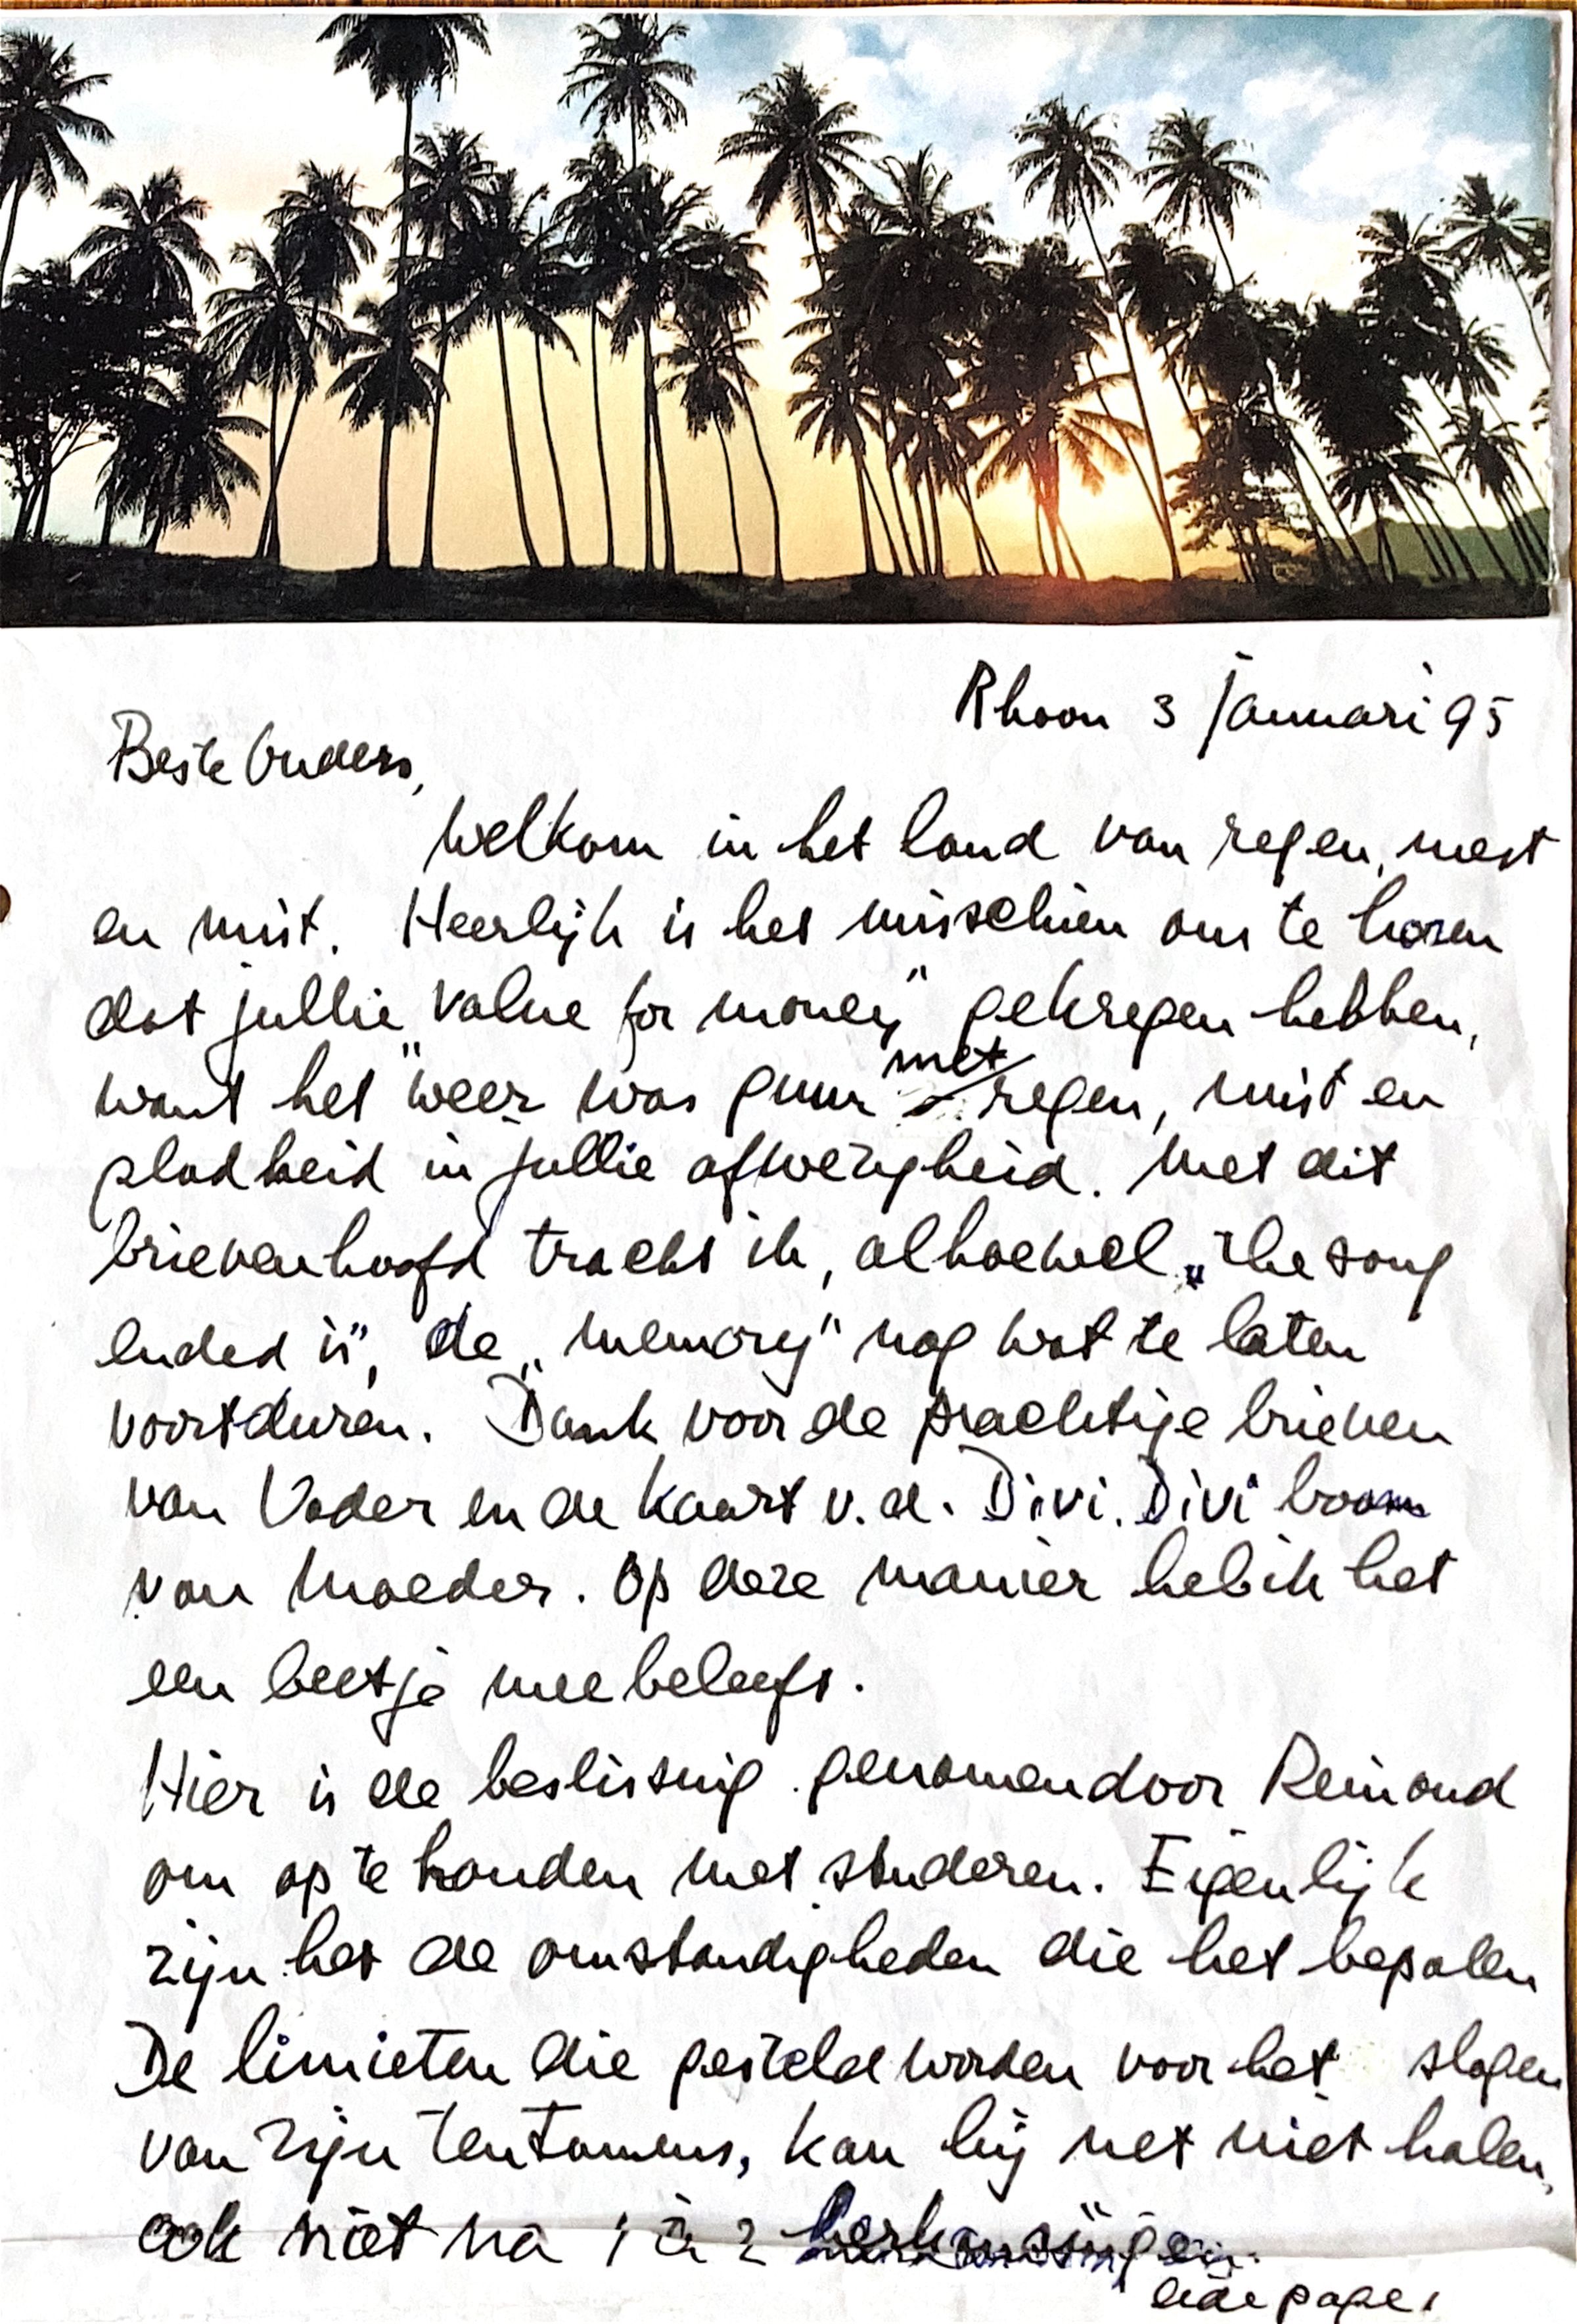 Rhoon 3 januari 95
Beste Ouders,
Welkom in het land van regen, mest
en mist. Heerlijk is het misschien om te horen
dat jullie „value for money" gekregen hebben,
want het weer was guur met regen, mist en
gladheid in jullie afwezigheid. Met dit
brievenhoofd tracht ik, alhoewel „the song
ended is", de „memory" nog wat te laten
voortduren. Dank voor de prachtige brieven
van Vader en de kaart v.d. Divi. Divi boom
van Moeder. Op deze manier heb ik het
een beetje meebeleeft.
Hier is de beslissing genomen door Reinoud
om op te houden met studeren. Eigenlijk
zijn het de omstandigheden die het bepalen
De limieten die gesteld worden voor het slagen
van zijn tentamens, kan hij net niet halen,
ook niet na 1 à 2 herkansingen.
eide page 1